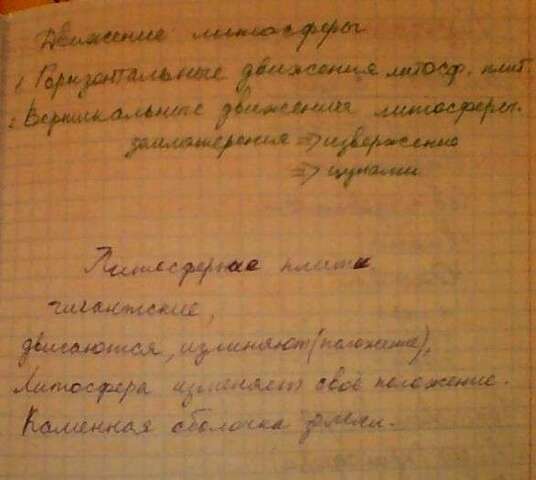 Движение литосферы
1 Горизонтальные движения литосф. плит.
2 Вертикальные движения литосферы.
землетререния => извержение
=> цунами
Литосферные плиты
гигантские,
двигаются, изменяют (положение),
Литосфера изменяет своё положение.
Каменная оболочка земли.